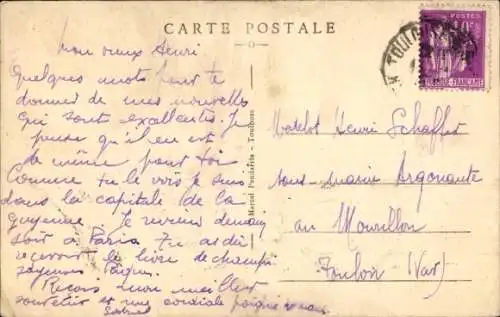 CARTE POSTALE
Mon vieux Henri
Quelques mots pour te
donner de mes nouvelles
qui sont excellentes. Je
pense qu'il en est
de même pour toi
Comme tu le vois je suis
dans la capitale de la
Guyenne. Je reviens demain
soir à Paris. Tu as dû
recevoir le livre de champi
Reçois mon meilleur
souvenir et une cordiale poignée
Marcel Toulouse
POSTES
FRANÇAISE
Matelot Henri Schaffer
Sous-marin Argonaute
au Mourillon
Toulon (Var)